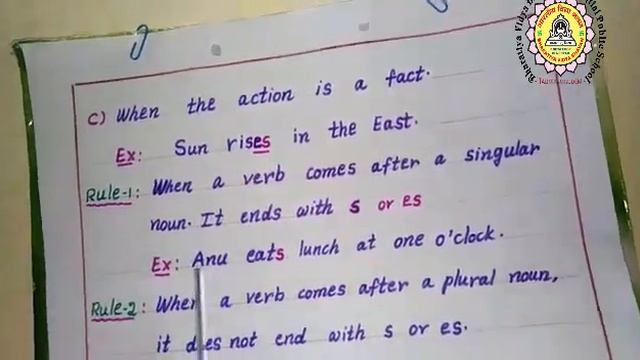 c) When the action is a fact.
Ex: Sun rises in the East.
Rule-1: When a verb comes after a singular
noun. It ends with s or es
Ex: Anu eats lunch at one o'clock.
Rule-2: When a verb comes after a plural noun,
it does not end with s or es.